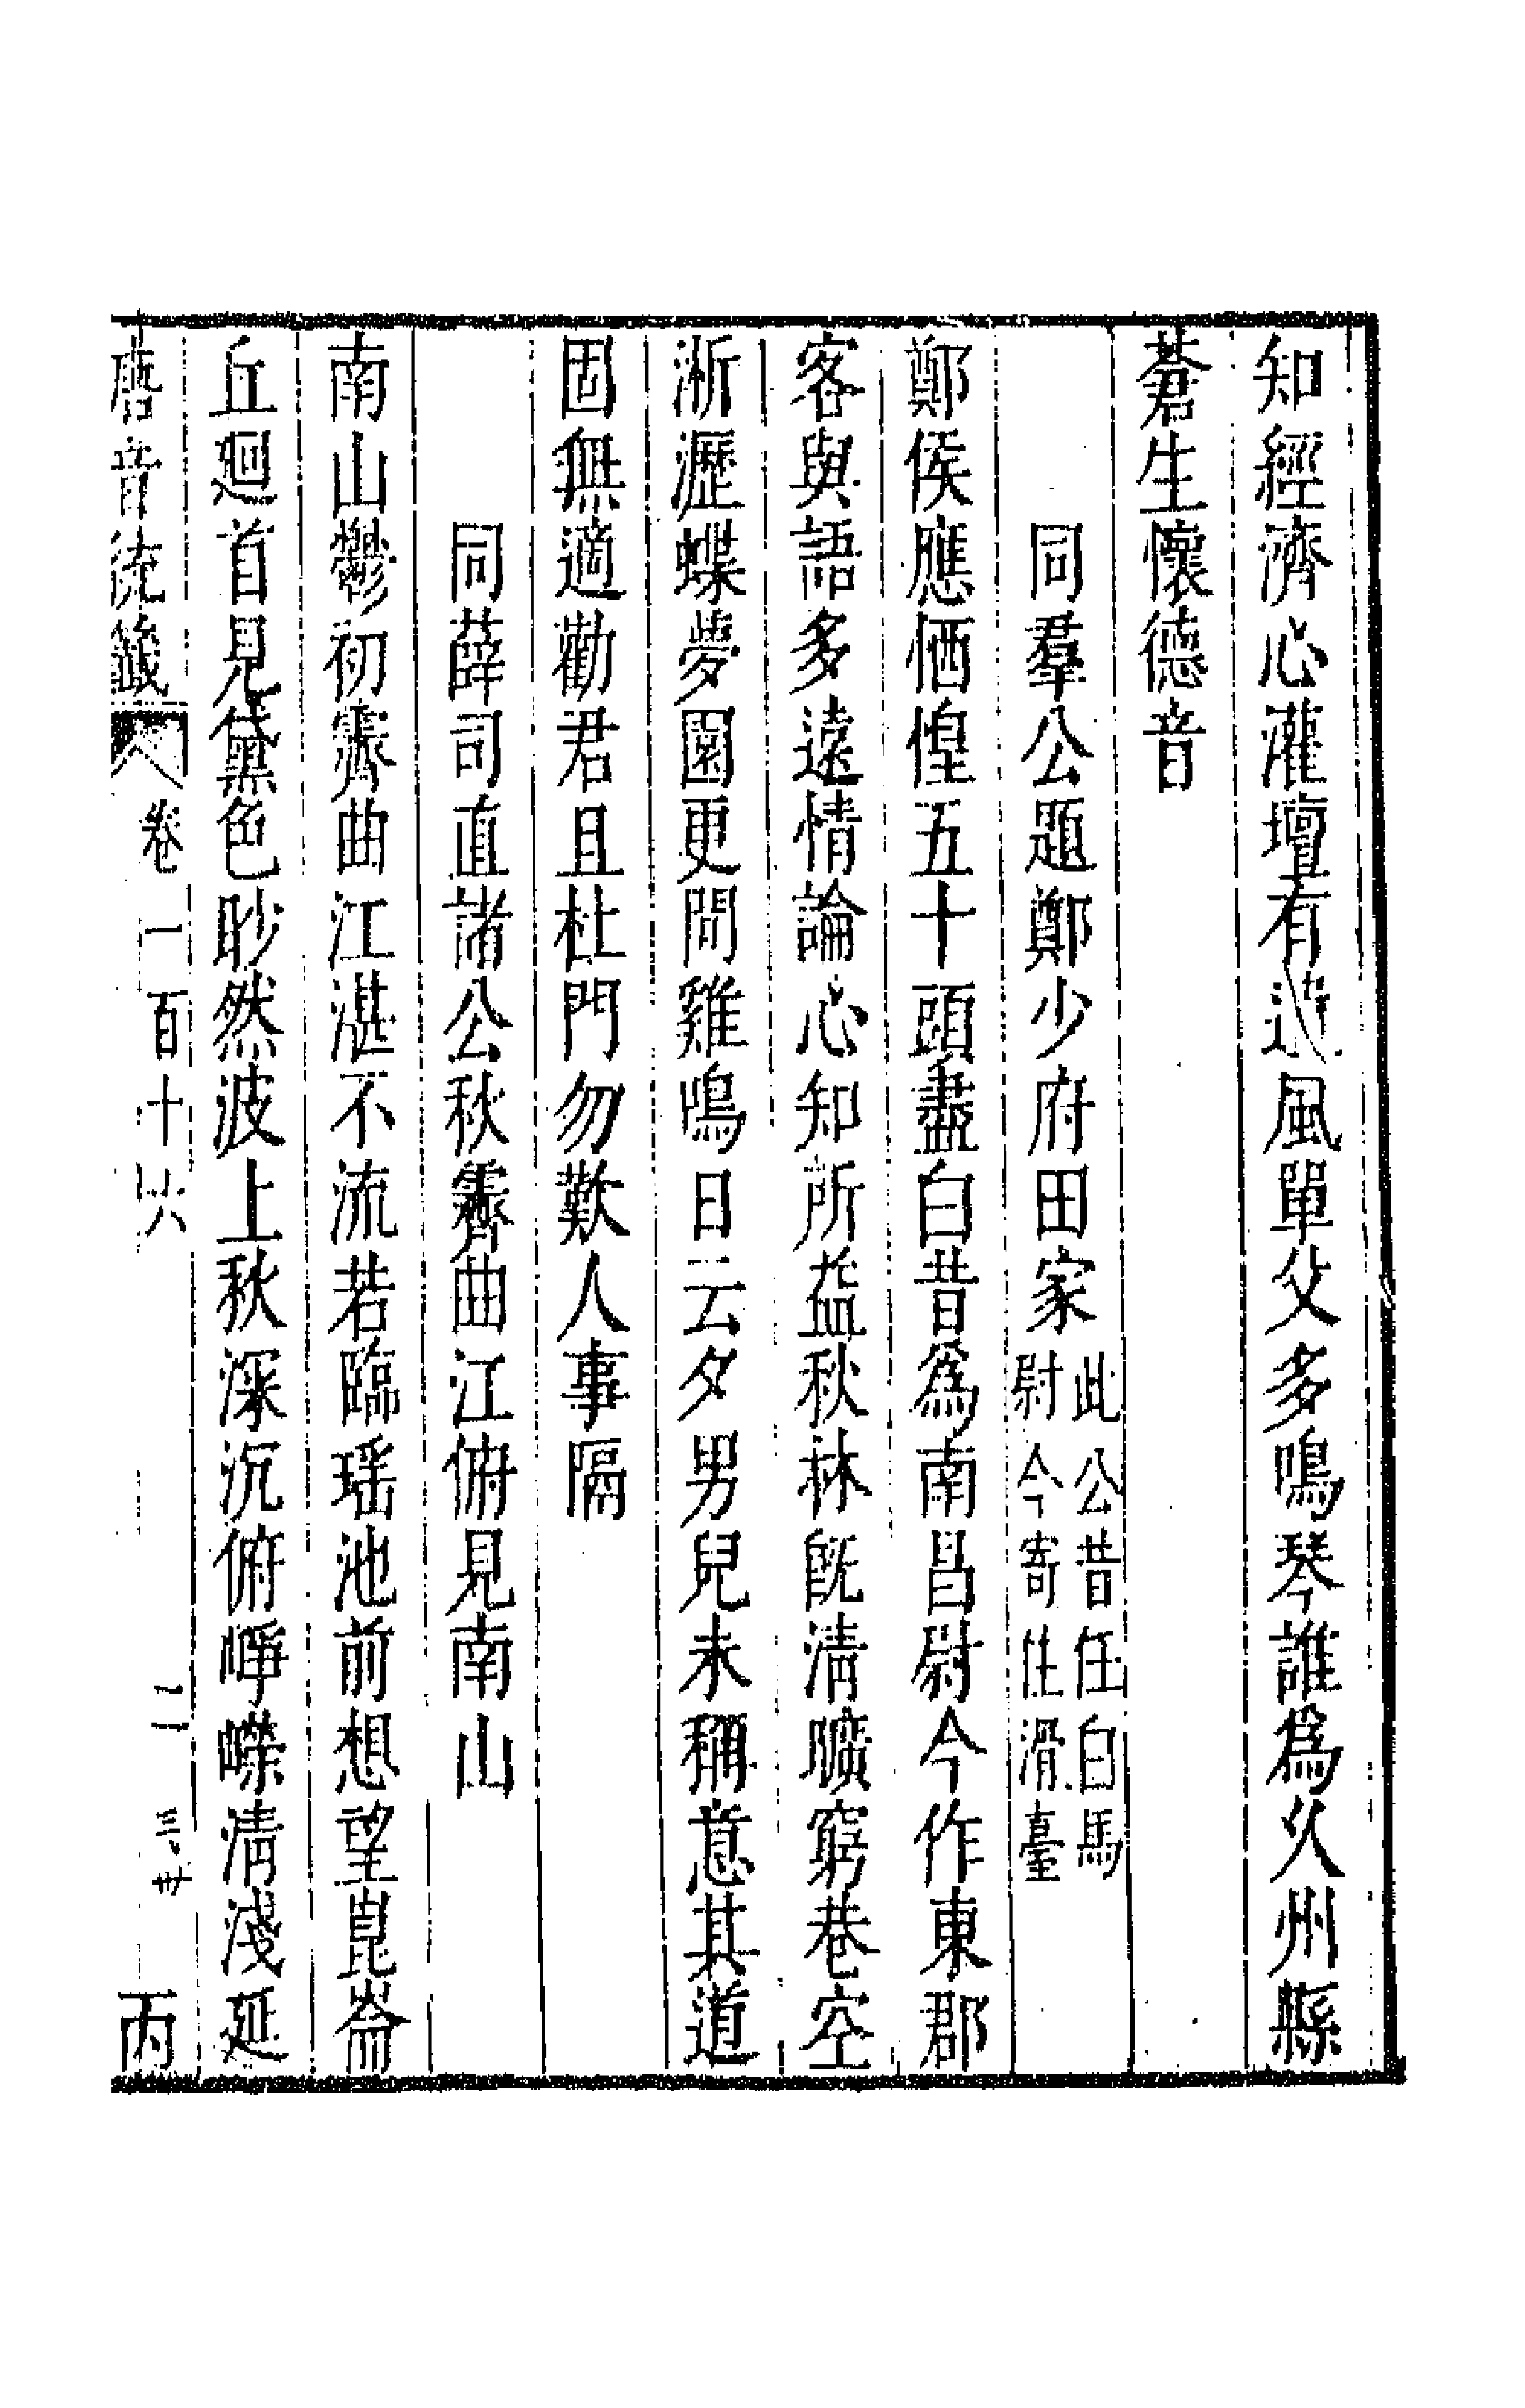 知經濟心灌壇有遺風單父多鳴琴誰爲久州縣
蒼生懷德音
同羣公題鄭少府田家此公昔任白馬尉今寄住滑臺
鄭侯應恓惶五十頭盡白昔爲南昌尉今作東郡
客與語多遠情論心知所益秋林旣清曠窮巷空
淅瀝蝶夢園更問雞鳴日云夕男兒未稱意其道
固無適勸君且杜門勿歎人事隔
同薛司直諸公秋霽曲江俯見南山
南山鬱初霽曲江湛不流若臨瑶池前想望崑崙
丘廻首見黛色眇然波上秋深沉俯崢嶸清淺延
唐音統籤 卷一百十六 二 丙